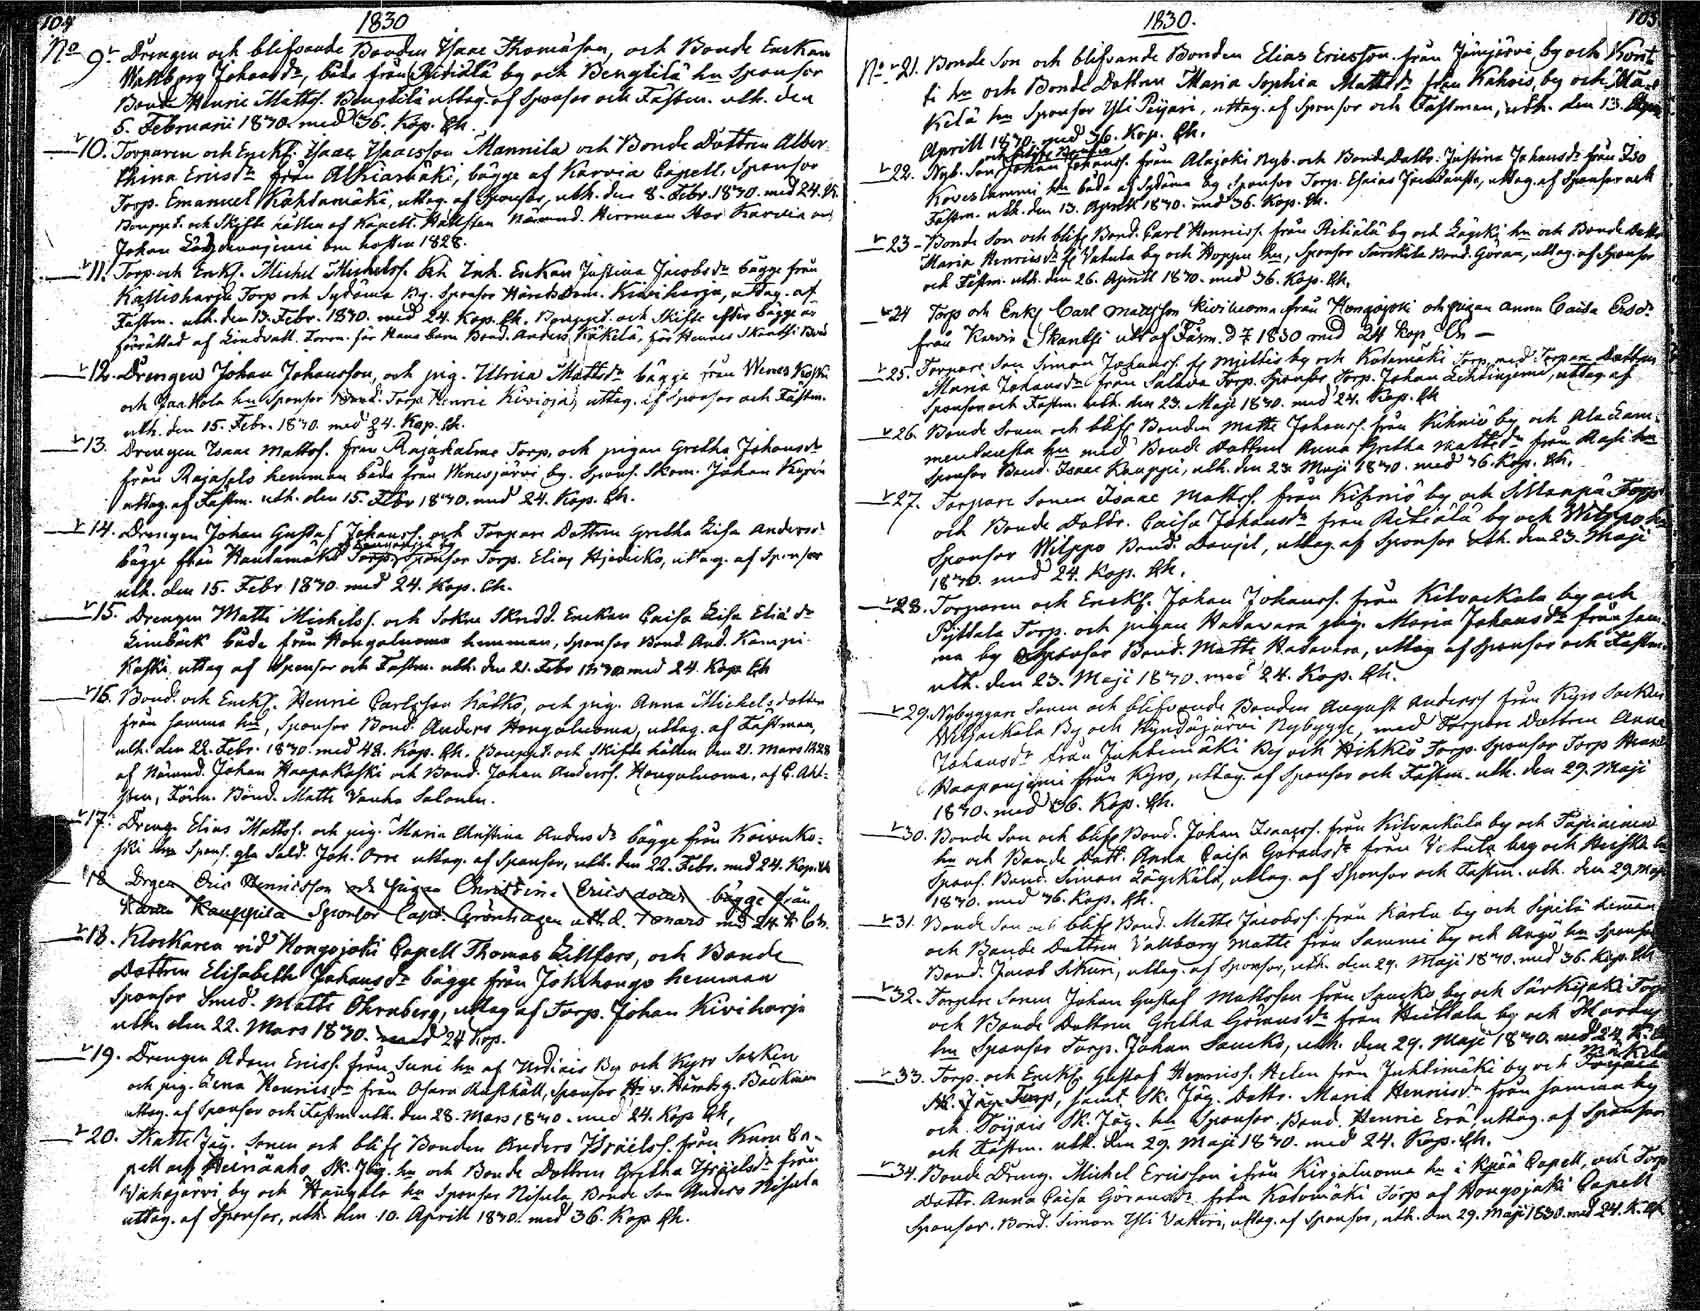 104
1830
No 9. Drengen och blifvande Bonden Isaac Thomasson, och Bonde Enckan
Wallborg Johansdr, båda från Ritiälä by och Bengtilä hn Sponsor
Bonde Henric Mattss. Bengtilä uttag. af Sponsor och Fästm. utb. den
5. Februarii 1830. med 36. Kop. Ch.
10. Torparen och Enckl. Isaac Isacsson Mannila och Bonde Dottren Alber-
thina Ericsdr från Alkiamäki, bägge af Karvia Capell, Sponsor
Torp. Emanuel Kahdamäki, uttag. af Sponsor, utb. den 8. Febr. 1830. med 24. K.
Bouppt. och Skifte hållen af Nämnd. Herrman Karvia och
Johan om hösten 1828.
11. Torp. och Enkl. Michel Michelss. och Inh. Enkan Justina Jacobsdr bägge från
Kallioharju Torp och Sydänmä By. Sponsor Kiviharju, uttag. af
Fästm. utb. den 13. Febr. 1830. med 24. Kop. Ch. Bouppt. och Skifte efter bägge är
förrättad af för Hans barn Bond. Anders Käkelä, för Hennes Skantsi Bond
12. Drengen Johan Johansson, och pig. Ulrica Mattsdr bägge från Wenes Koski
och Jaakola hn Sponsor Torp. Henric Kivioja, uttag. af Sponsor och Fästm.
utb. den 15. Febr. 1830. med 24. Kop. Ch.
13. Drengen Isaac Mattss. från Rajakalma Torp, och pigan Gretha Johansdr
från Rajasels hemman båda från Wenesjärvi by. Spons. Skom. Johan
uttag. af Fästm. utb. den 15. Febr 1830. med 24. Kop. Ch.
14. Drengen Johan Gustaf Johanss. och Torpare Dottren Gretha Lisa Anders
bägge från Hautamäki Torp, Sponsor Torp. Elias Hjedicko, uttag. af Sponsor
utb. den 15. Febr 1830. med 24. Kop. Ch.
15. Drengen Matts Michelss. och Sokne Skrädd. Enckan Caisa Lisa Eliædr
Limbäck båda från Hongoluoma hemman, Sponsor Bond. And. Kamppi
Koski, uttag af Sponsor och Fästm. utb. den 21. Febr 1830 med 24. Kop Ch
16. Bond. och Enckl. Henric Carlsson Kalko, och pig. Anna Michels dotter
från samma hn, Sponsor Bond. Anders Hongoluoma, uttag. af Fästman,
utb. den 22. Febr. 1830. med 48. Kop. Ch. Bouppt. och Skifte hållen den 21. Mars 1828
af Nämnd. Johan Haapakoski och Bond. Johan Anderss. Hongoluoma, af C. Ahl-
sten, Förm. Bond. Matts Vanha Salonen.
17. Dreng. Elias Mattss. och pig. Maria Christina Andersdr bägge från Koivuko-
ski hn Spons. gla Sold. Joh. Orre uttag. af Sponsor, utb. den 22. Febr. med 24. Kop. Ch
18 Drgen Eric Henricsson och Pigan Christina Ericsdotter bägge från
Karvia Kauppila Sponsor Capt. Grönhagen utt. d. 7 mars med 24 K Ch.
18. Klockaren vid Hongojoki Capell Thomas Lillfors, och Bonde
Dottren Elisabeth Johansdr bägge från Juhohongo hemman
Sponsor Smed. Matts Ohrnberg, uttag af Torp. Johan Kiviharju
utb. den 22. Mars 1830. med 24 Kop.
19. Drengen Adam Ericss. från Juni hn af Urdinis By och Kyro Socken
och pig. Lena Henricsdr från Osara Rusthåll, Sponsor Hr v. Hämbg. Bäckman
uttag. af Sponsor och Fästm utb. den 28. Mars 1830. med 24. Kop Ch,
20. Skatte Jäg. Sonen och blifv Bonden Anders Israelss. från Kuru Ca-
pell och Heinäaho Sk. Jäg. hn och Bonde Dottren Gretha Israelsdr från
Vahojärvi by och Haugala hn Sponsor Nisula Bonde Son Anders Nisula
uttag. af Sponsor, utb. den 10. Aprill 1830. med 36. Kop Ch.
105
1830.
No 21. Bonde Son och blifvande Bonden Elias Ericsson från Jämijärvi by och Kont
ti hn och Bonde Dottren Maria Sophia Mattsdr från Kahois by och
Kelä hn Sponsor Yli Peijari, uttag. af Sponsor och Fästman, utb. den 13.
Aprill 1830. med 36. Kop. Ch.
och blifv Bonden
22. Nyb. Son Johan Johanss. från Alajoki Nyb. och Bonde Dottr. Justina Johansdr från Iso
Koveslammi hn båda af Sydänmä by Sponsor Torp. Esaias, uttag. af Sponsor och
Fästm. utb. den 13. Aprill 1830. med 36. Kop. Ch.
23 Bonde Son och blifv Bond. Carl Henricss. från Ritiälä by och Lägski hn och Bonde Dottr
Maria Henricsdr fr Vatula by och Hoppu hn, Sponsor Sarckila Bond. Göran, uttag. af Sponsor
och Fästm. utb. den 26. Aprill 1830. med 36. Kop. Ch,
24 Torp och Enkl Carl Matsson Kiviluoma från Hongojoki och pigan Anna Caisa Ersdr
från Karvia Skantsi utt af Fästm. d 7 1830 med 24 Kop Ch —
25. Torpare Son Simon Johanss. fr Myllis by och Katamäki Torp, med Torpare Dottren
Maria Johansdr från Salava Torp. Sponsor Torp. Johan Lehdinjemi, uttag. af
Sponsor och Fästm. utb. den 23. Maji 1830. med 24. Kop. Ch
26. Bonde Sonen och blifv Bonden Matts Johanss. från Kihniö by och Ala Lam-
minhausta hn med Bonde Dottren Anna Gretha Mattsdr från Rasi hn
Sponsor Bond. Isaac Kauppi, utb. den 23. Maji 1830. med 36. Kop. Ch,
27. Torpare Sonen Isaac Mattss. från Kihniö by och Sillanpä Torp
och Bonde Dottr. Caisa Johansdr från Ritiälä by och Wilppo hn
Sponsor Wilppo Bond. Daniel, uttag. af Sponsor utb. den 23. Maji
1830. med 24. Kop. Ch.
28. Torparen och Enckl. Johan Johanss. från Kilvackala by och
Pijttala Torp. och pigan Hadavara pig. Maria Johansdr från sam-
ma by Sponsor Bond. Matts Hadavara, uttag. af Sponsor och Fästm.
utb. den 23. Maji 1830. med 24. Kop. Ch.
29. Nybyggare Sonen och blifvande Bonden August Anderss från Kyro Socken
Wesackala By och Kyndäjärvi Nybygge, med Torpare Dottren Anna
Johansdr från Juhtimäki By och Hihkiö Torp. Sponsor Torp Henric
Haaponjemi från Kyro, uttag. af Sponsor och Fästm. utb. den 29. Maji
1830. med 36. Kop. Ch.
30. Bonde Son och blifv Bond. Johan Isaacss. från Kilvackala by och Papiainen
hn och Bonde Dott. Anna Caisa Göransdr från Vatula by och Heiska hn
Spons. Bond. Simon Lägskälä, uttag. af Sponsor och Fästm. utb. den 29. Maj.
1830. med 36. Kop. Ch.
31. Bonde Son och blifv Bond. Matts Jacobss. från Kärtu by och Sipilä heman
och Bonde Dottren Vallborg Matts från Sammi by och Argo hn Sponsor
Bond. Jacob Sikuri, uttag. af Sponsor, utb. den 29. Maji 1830. med 36. Kop. Ch
32. Torpare Sonen Johan Gustaf Mattsson från Saucko by och Särkijoki Torp
och Bonde Dottren Gretha Göransdr från Heittola by och Skardy
hn Sponsor Torp. Johan Saucko, utb. den 29. Maji 1830. med 24. K. Ch
33. Torp. och Enckl. Gustaf Henricss. Helen från Juhtimäki by och
Sk. Jäg. Torp, samt Sk. Jäg. Dottr. Maria Henricsdr från samma by
och Töijais Sk. Jäg. hn Sponsor Bond. Henric Erä, uttag. af Sponsor
och Fästm. utb. den 29. Maji 1830. med 24. Kop. Ch.
34. Bonde Dreng. Michel Ericsson ifrån Kirjaluoma hn i Capell, och Torp
Dottr. Anna Caisa Göransdr från Katomäki Torp af Hongojoki Capell
Sponsor Bond. Simon Yli Vakeri, uttag. af Sponsor, utb. den 29. Maji 1830. med 24. K. Ch